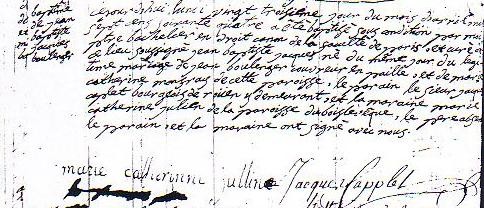 baptême
de jean
baptiste
jacques
boulenger
cejourdhui lundi vingt troisieme jour du mois davril mil
sept cens soixante quatre a été baptisé sous condition par moi
ptre bachelier en droit canon de la faculté de paris et curé de
ce lieu soussigné jean baptiste jacques né du même jour du legi
time mariage de jean boulenger couvreur en paille et de marie
catherine de cette paroisse, le parain le sieur jacques
applet bourgeois de y demeurant, et la maraine marie
catherine julien de la paroisse duboislevêque, le pere absent
le parain, et la maraine ont signé avec nous.
marie catherinne julline Jacques Lapplet